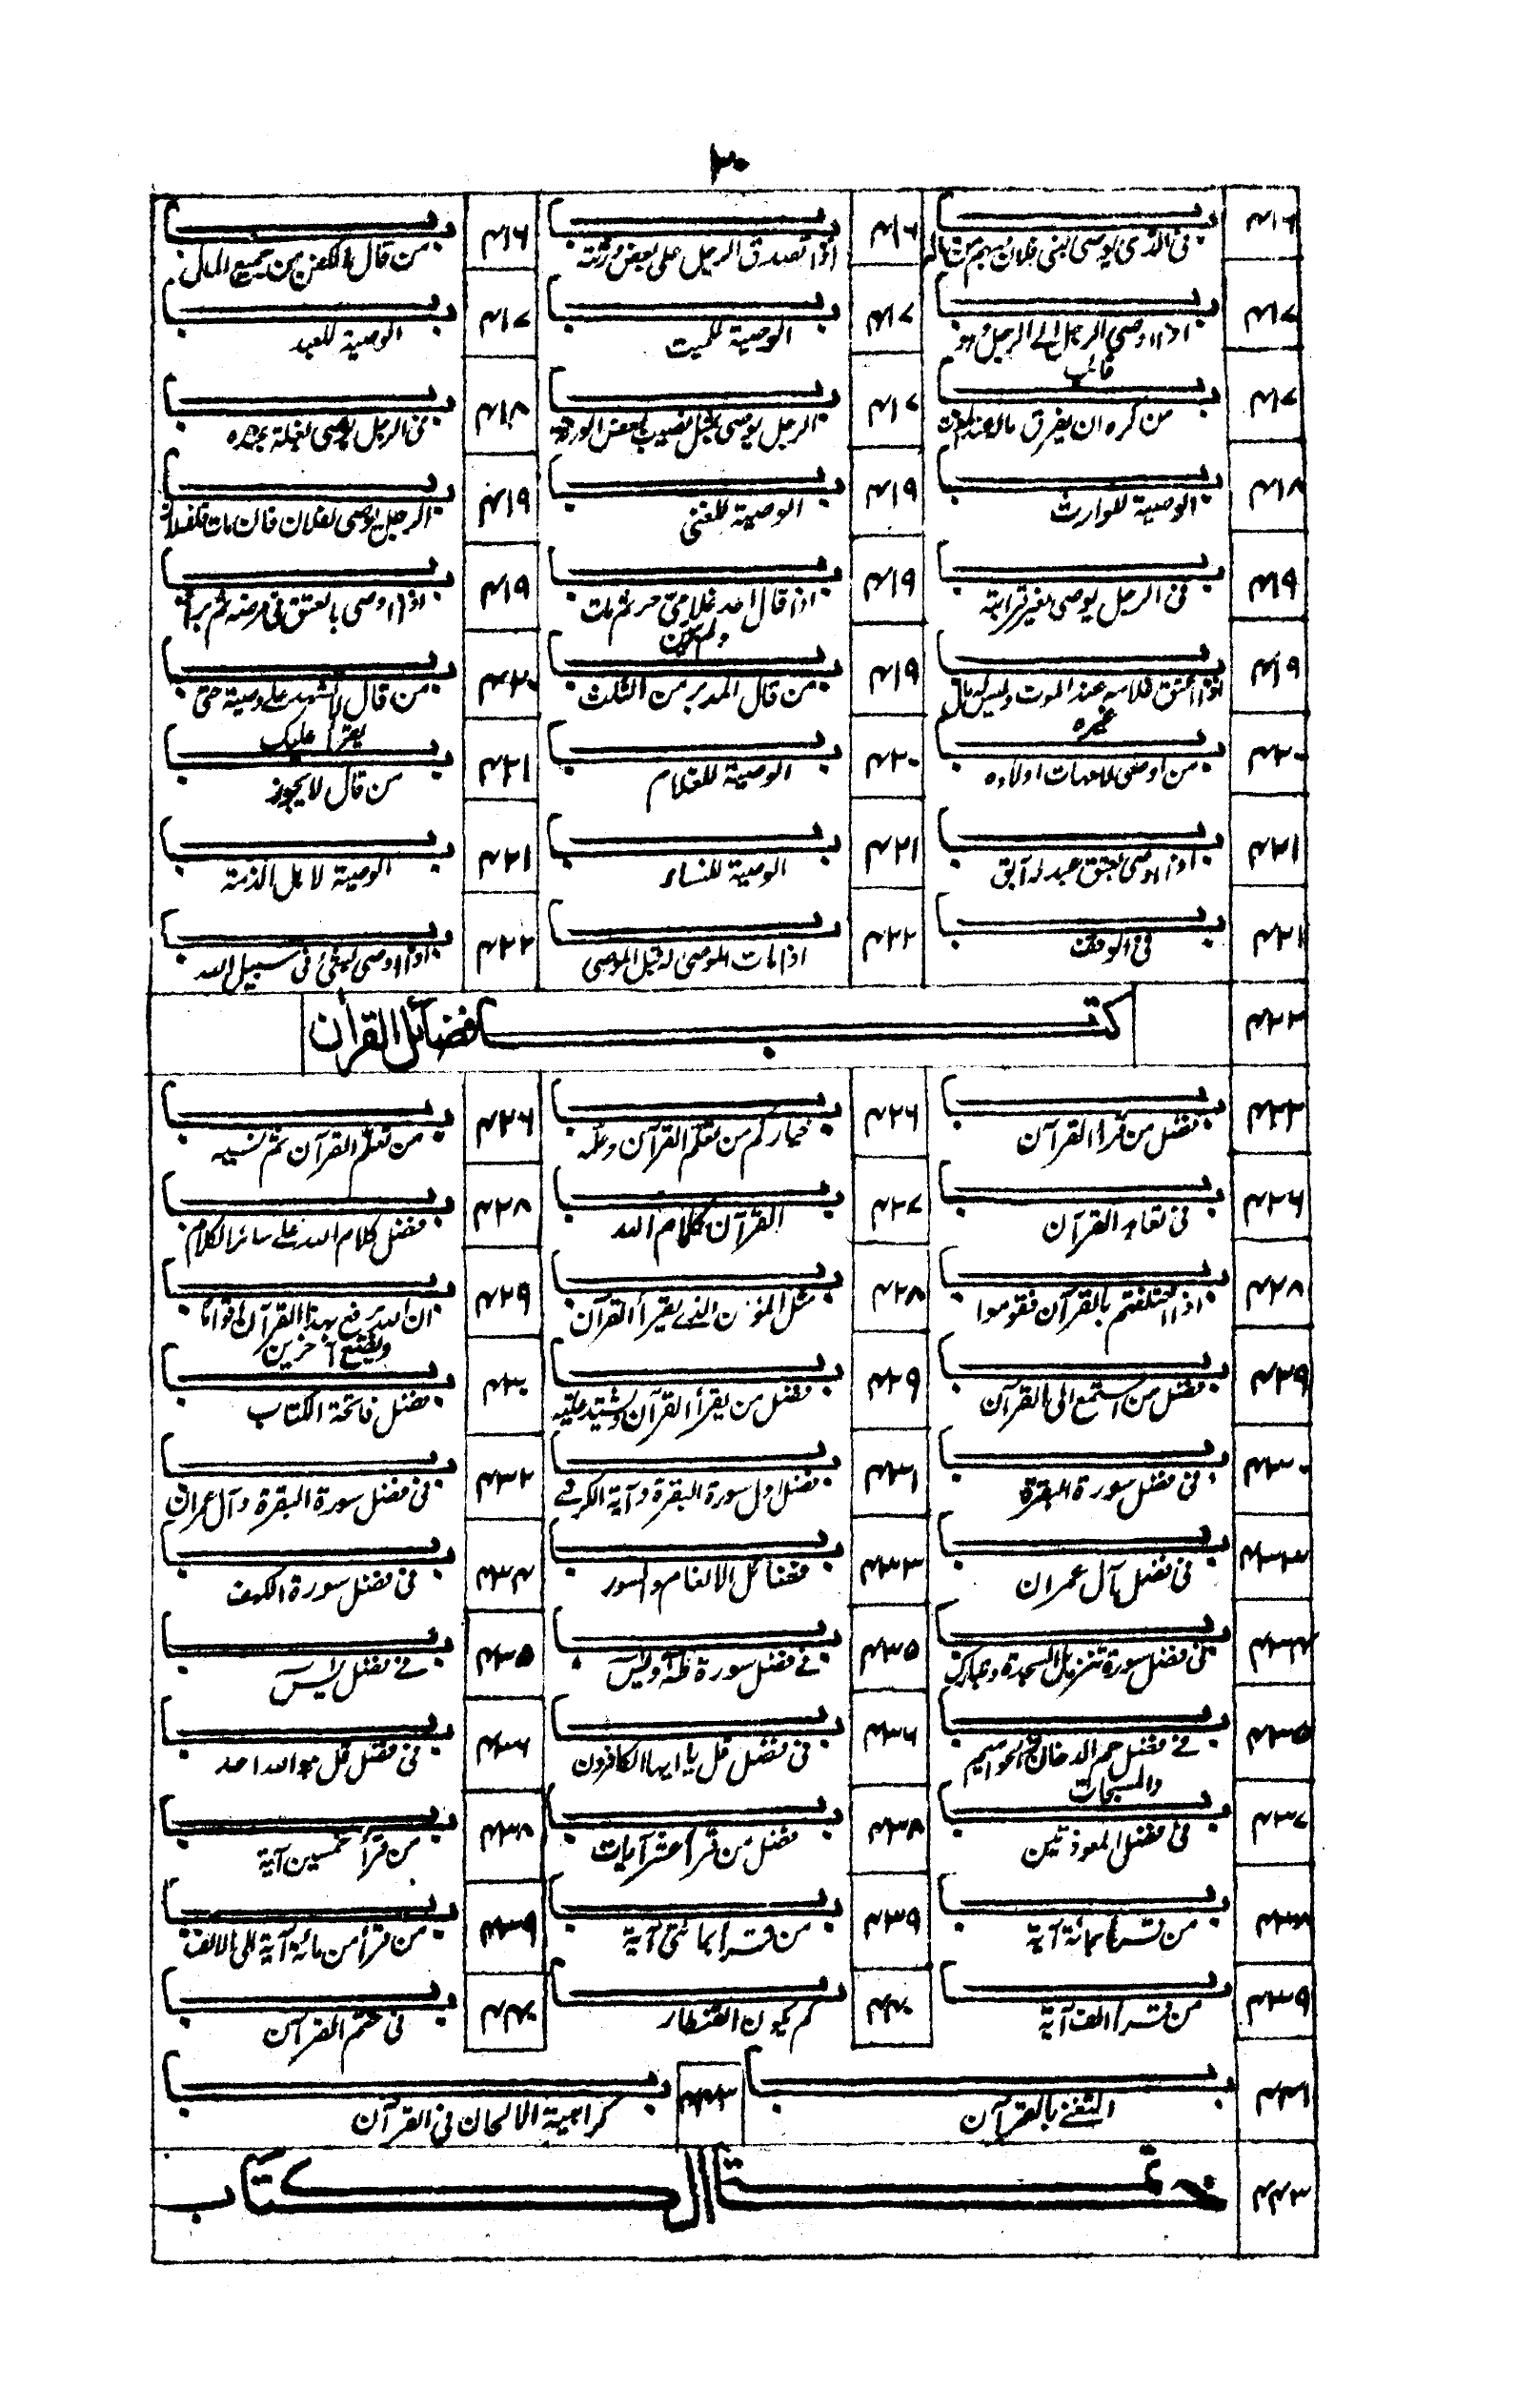 ٣٠
٤١٦ باب في الذي يوصي لبني فلان بسهم من ماله ٤١٦ باب اذا تصدق الرجل على بعض ورثته ٤١٦ باب من قال الكفن من جميع المال
٤١٧ باب اذا اوصى الرجل الى الرجل وهو غائب ٤١٧ باب الوصية للميت ٤١٧ باب الوصية للعبد
٤١٧ باب من كره ان يفرق ماله عند الموت ٤١٧ باب الرجل يوصي بمثل نصيب بعض الورثة ٤١٨ باب في الرجل يوصي بغلة عبده
٤١٨ باب الوصية للوارث ٤١٩ باب الوصية للغني ٤١٩ باب الرجل يوصي لفلان فان مات فلفلان
٤١٩ باب في الرجل يوصي لغير قرابته ٤١٩ باب اذا قال احد غلامي حر ثم مات ولم يبين ٤١٩ باب اذا اوصى بالعتق في مرضه ثم برأ
٤١٩ باب اذا اعتق غلامه عند الموت وليس له مال غيره ٤١٩ باب من قال المدبر من الثلث ٤٢٠ باب من قال لا اشهد على وصية حتى يقرأ عليك
٤٢٠ باب من اوصى لامهات اولاده ٤٢٠ باب الوصية للغلام ٤٢١ باب من قال لا يجوز
٤٢١ باب اذا اوصى بعتق عبد له آبق ٤٢١ باب الوصية للنساء ٤٢١ باب الوصية لاهل الذمة
٤٢١ باب في الوقف ٤٢٢ باب اذا مات الموصى له قبل الموصي ٤٢٢ باب اذا اوصى بشئ في سبيل الله
٤٢٢ كتاب فضائل القرآن
٤٢٢ باب فضل من قرأ القرآن ٤٢٦ باب خياركم من تعلم القرآن وعلمه ٤٢٦ باب من تعلم القرآن ثم نسيه
٤٢٦ باب في تعاهد القرآن ٤٢٧ باب القرآن كلام الله ٤٢٨ باب فضل كلام الله على سائر الكلام
٤٢٨ باب اذا اختلفتم بالقرآن فقوموا ٤٢٨ باب مثل المؤمن الذي يقرأ القرآن ٤٢٩ باب ان الله يرفع بهذا القرآن اقواما ويضع آخرين
٤٢٩ باب فضل من استمع الى القرآن ٤٢٩ باب فضل من يقرأ القرآن ويشتد عليه ٤٣٠ باب فضل فاتحة الكتاب
٤٣٠ باب في فضل سورة البقرة ٤٣١ باب فضل اول سورة البقرة وآية الكرسي ٤٣٢ باب في فضل سورة البقرة وآل عمران
٤٣٣ باب في فضل آل عمران ٤٣٣ باب فضائل الانعام والسور ٤٣٤ باب في فضل سورة الكهف
٤٣٤ باب في فضل سورة تنزيل السجدة وتبارك ٤٣٥ باب في فضل سورة طه ويس ٤٣٥ باب في فضل يس
٤٣٥ باب في فضل حم الدخان والحواميم والمسبحات ٤٣٦ باب في فضل قل يا ايها الكافرون ٤٣٦ باب في فضل قل هو الله احد
٤٣٧ باب في فضل المعوذتين ٤٣٨ باب فضل من قرأ عشر آيات ٤٣٨ باب من قرأ خمسين آية
٤٣٨ باب من قرأ بمائة آية ٤٣٩ باب من قرأ بمائتي آية ٤٣٩ باب من قرأ من مائة آية الى الالف
٤٣٩ باب من قرأ الف آية ٤٤٠ باب كم يكون القنطار ٤٤٠ باب في ختم القرآن
٤٤١ باب التغني بالقرآن ٤٤٣ باب كراهية الالحان في القرآن
٤٤٣ خاتمة الكتاب